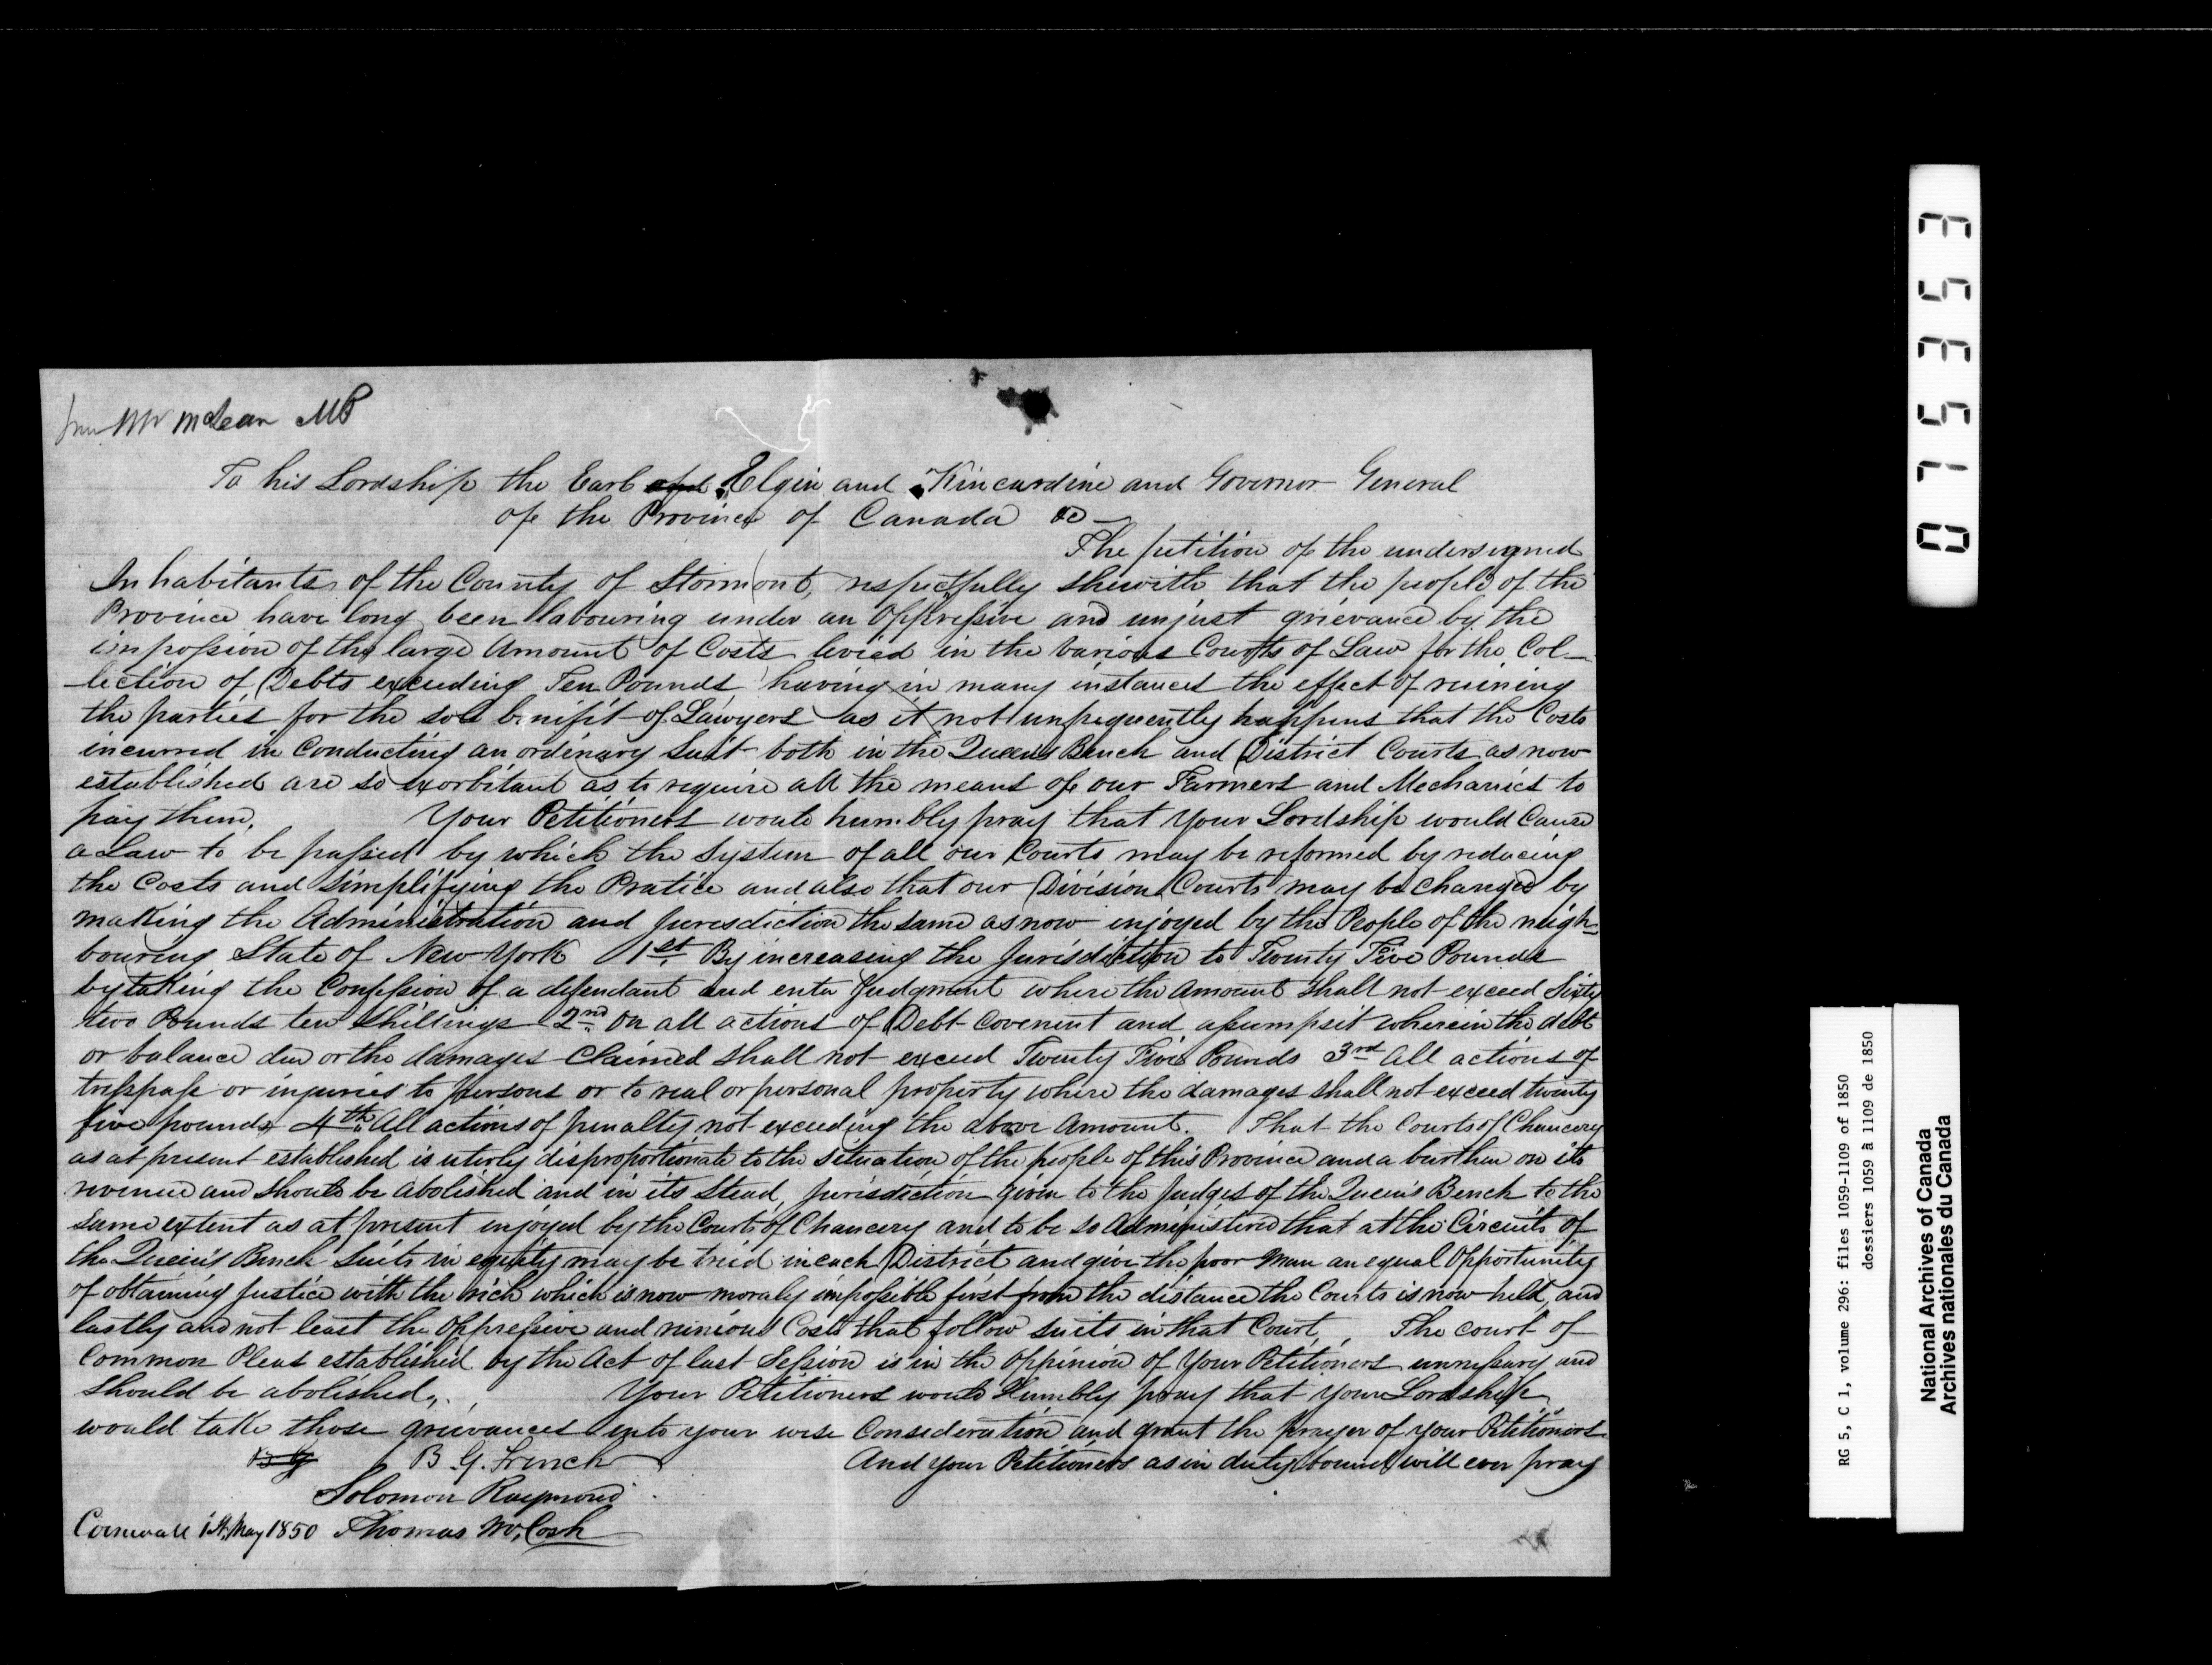 from Mr McLean MP
To his Lordship the Earl of Elgin and Kincardine and Governor General
of the Province of Canada &c
The petition of the undersigned
Inhabitants of the County of Stormont, respectfully shewith that the people of the
Province have long been labouring under an Oppressive and unjust grievance by the
impossion of the large Amount of Costs levied in the various Courts of Law for the Col-
-lection of Debts exceeding Ten Pounds having in many instances the effect of ruining
the parties for the sole benifit of Lawyers as it not unfrequently happens that the Costs
incurred in Conducting an ordinary Suit both in the Queens Bench and District Courts as now
established are so exorbitant as to require all the means of our Farmers and Mechanics to
pay them. Your Petitioners would humbly pray that Your Lordship would Cause
a Law to be passed by which the System of all our Courts may be reformed by reducing
the Costs and Simplifying the Pratice and also that our Division Courts may be changed by
making the Administration and Jurisdiction the same as now enjoyed by the People of the neigh-
bouring State of New York 1st By increasing the Jurisdiction to Twenty Five Pounds
by taking the Confession of a defendant and enter Judgment where the Amount shall not exceed Sixty
two Pounds ten shillings 2nd On all actions of Debt Covenent and assumpsit wherein the debt
or balance due or the damages Claimed shall not exceed Twenty Five Pounds 3rd All actions of
trespass or injuries to persons or to real or personal property where the damages shall not exceed twenty
five pounds 4th All actions of penalty not exceeding the above Amount. That the Courts of Chancery
as at present established is uterly disproportionate to the situation of the people of this Province and a burthen on its
revenue and should be abolished and in its stead, jurisdiction given to the Judges of the Queen's Bench to the
same extent as at present enjoyed by the Court of Chancery and to be so administered that at the Circuits of
the Queen's Bench Suits in equity may be tried in each District and give the poor man an equal Opportunity
of obtaining justice with the rich which is now moraly impossible first from the distance the Courts is now held, and
lastly and not least the Oppressive and ruinious Costs that follow suits in that Court, The court of
Common Pleas established by the Act of last Session is in the Oppinion of Your Petitioners unnessary and
should be abolished. Your Petitioners would Humbly pray that your Lordship
would take those grievances into your wise Consideration and grant the prayer of your Petitioners
B G B G. French And your Petitioners as in duty bound will ever pray
Solomon Raymond
Cornwall 1st May 1850 Thomas McCosh
075353
RG 5, C 1, volume 296: files 1059-1109 of 1850
dossiers 1059 à 1109 de 1850
National Archives of Canada
Archives nationales du Canada